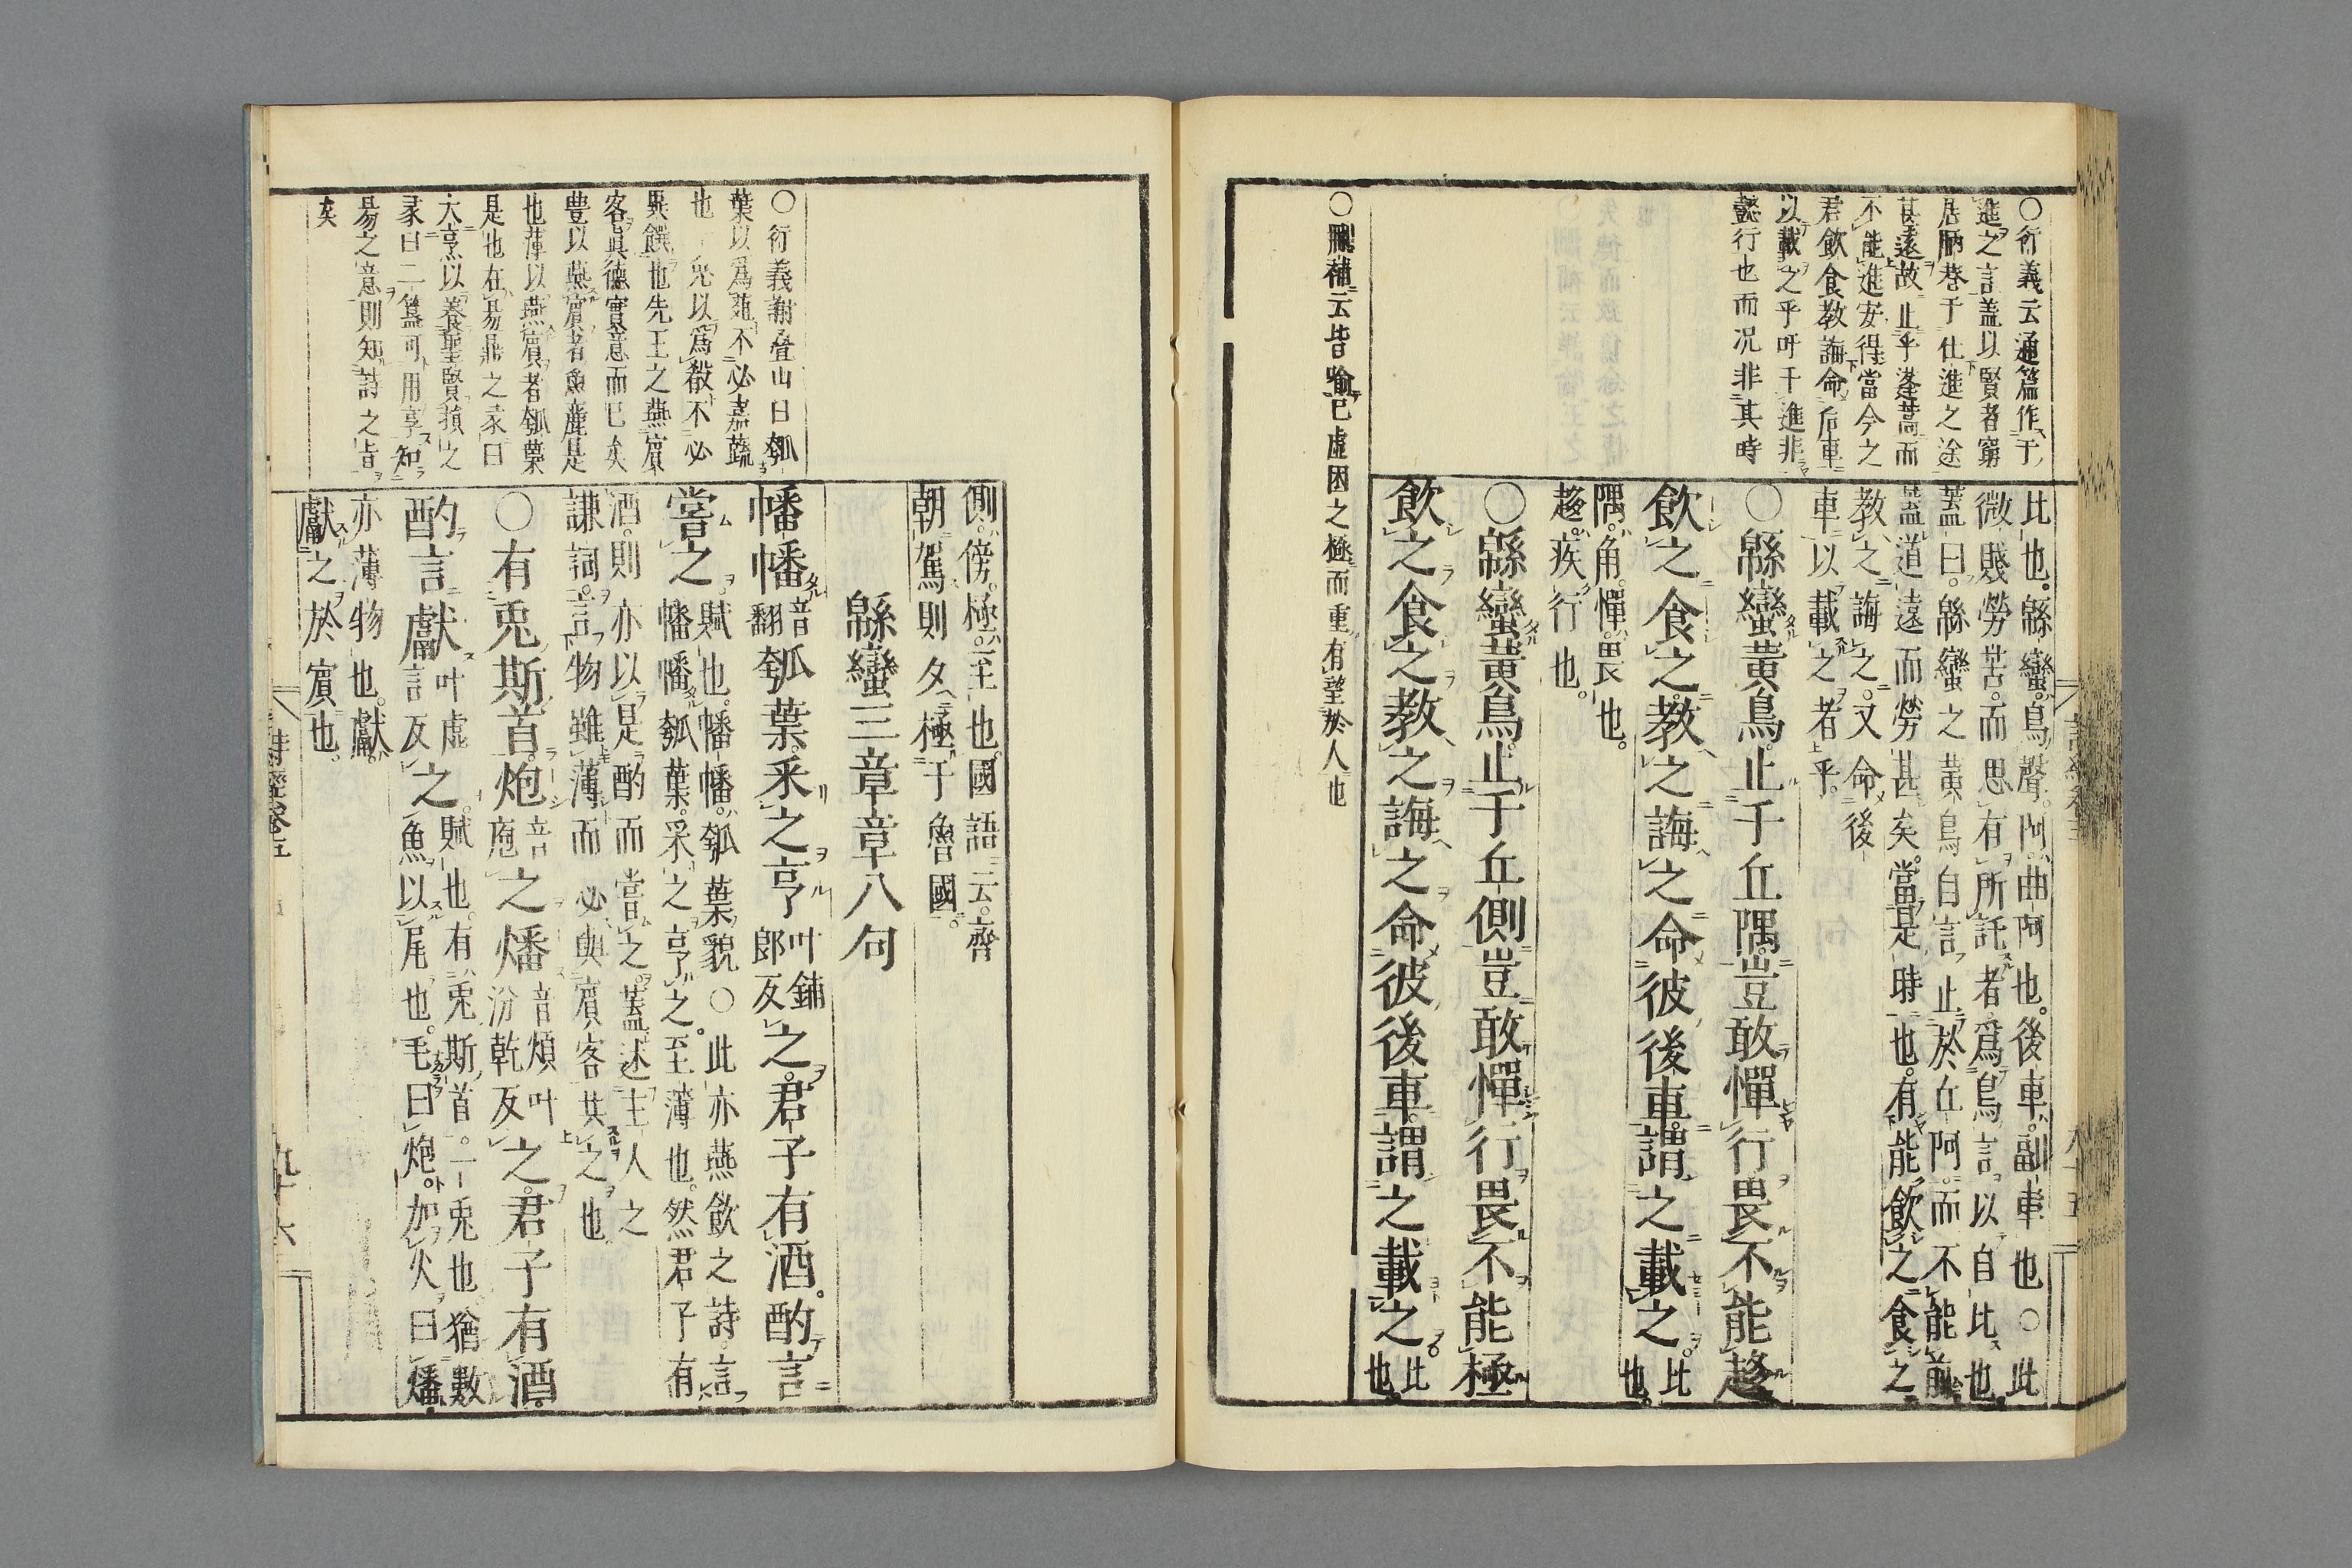 ○衍義云通篇作于
進之言蓋以賢者窮
居陋巷于仕進之途
甚遠故止乎蓬蒿而
不能進安得當今之
君飲食教誨命后車
以載之乎吁干進非
懿行也而况非其時
比也。緜蠻。鳥聲。阿。曲阿也。後車。副車也○此
微賤勞苦。而思有所託者。爲鳥言以自比也
蓋曰。緜蠻之黃鳥自言止於丘阿。而不能前
蓋道遠而勞甚矣。當是時也。有能飲之食之
教之誨之。又命後
車以載之者乎。
○緜蠻黃鳥止于丘隅。豈敢憚行畏不能趨
飲之食之。教之誨之。命彼後車。謂之載之。比也。
隅。角。憚。畏也。
趨。疾行也。
○緜蠻黃鳥。止于丘側豈敢憚行畏不能極
飲之食之教之誨之命彼後車。謂之載之。比也
○刪補云皆喻已處困之極而重有望於人也
側。傍。極。至也。國語云。齊
朝駕則夕極于魯國。
緜蠻三章章八句
○衍義謝叠山曰瓠
葉以爲菹不必嘉蔬
也兎以爲殽不必
異饌也先王之燕賔
客眞德實意而已矣
豊以燕賔者魚麗是
也薄以燕賔者瓠葉
是也在易鼎之彖曰
大亨以養聖賢損之
彖曰二簋可用享知
易之意則知詩之旨
矣
幡幡音翻瓠葉。采之亨叶鋪郎反之。君子有酒。酌言
嘗之賦也。幡幡。瓠葉貌○此亦燕飲之詩。言
幡幡瓠葉。采之亨之。至薄也。然君子有
酒。則亦以是酌而嘗之。蓋述主人之
謙詞。言物雖薄而必與賔客共之也
○有兎斯首。炮音庖之燔音煩叶汾乾反之。君子有酒。
酌言獻叶虛言反之。賦也。有兎斯首。一兎也猶數
魚以尾也。毛曰炮。加火曰燔
亦薄物也。獻。
獻之於賔也。
詩經卷五
九十六